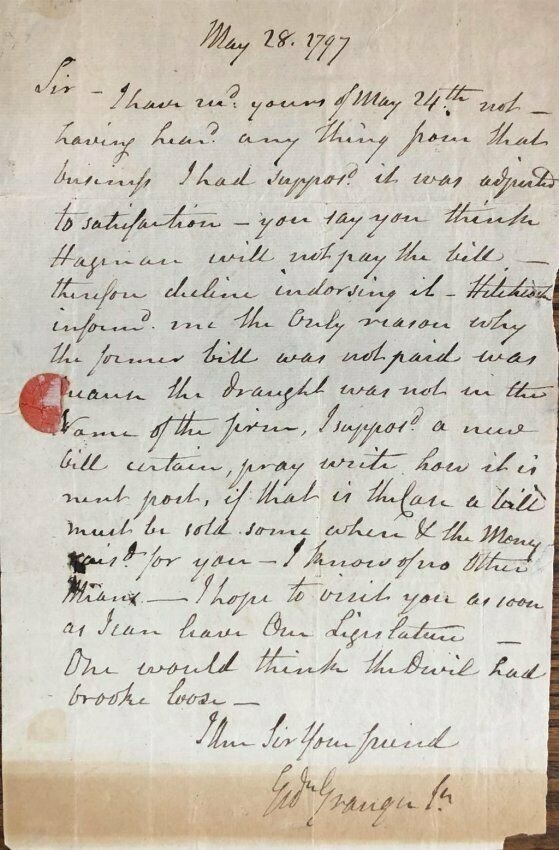 May 28. 1797
Sir - I have recd. yours of May 24.th not -
having heard. any thing from that
business I had suppos.d it was adjusted
to satisfaction - you say you think
Hagman will not pay the bill -
therefore decline indorsing it - Hitchcock
inform.d me the Only reason why
the former bill was not paid was
because the draught was not in the
Name of the firm, I suppos.d a new
bill certain, pray write how it is
next post, if that is the Case a bill
must be sold some where & the Money
rais.d for you - I know of no Other
Means - I hope to visit you as soon
as I can leave Our Legislature -
One would think the Divil had
brooke loose -
I Am Sir Your friend
Gidn Granger Jr